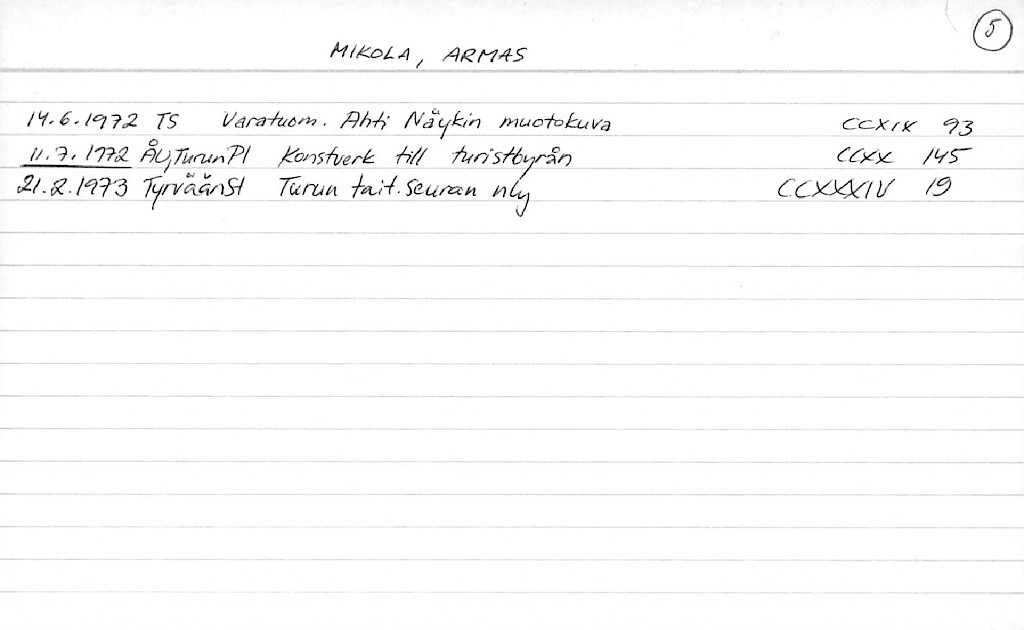 5
MIKOLA, ARMAS
14.6.1972 TS Varatuom. Ahti Näykin muotokuva CCXIX 93
11.7.1972 ÅU, TurunPl Konstverk till turistbyrån CCXX 145
21.2.1973 TyrväänSt Turun tait.seuran nly CCXXXIV 19